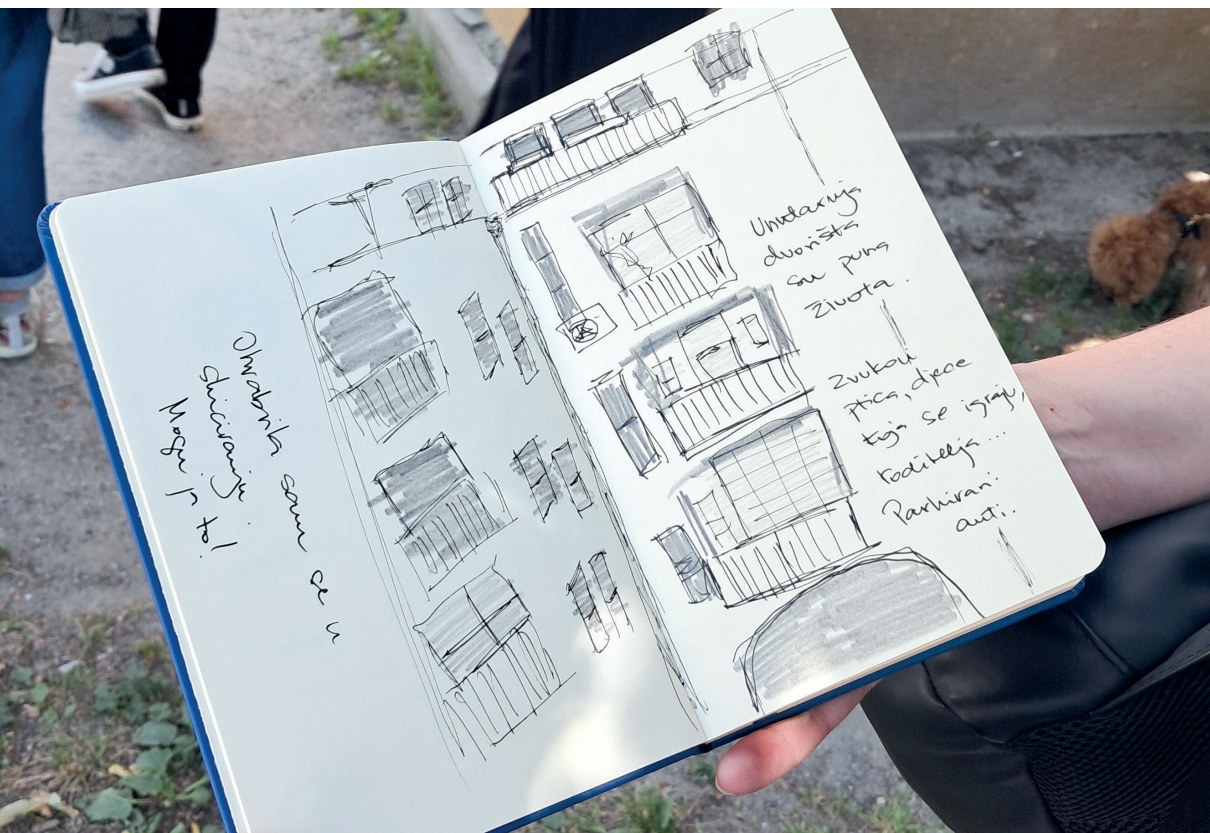 Ohrabrila sam se u
skiciranju
Mogu ja to!
Unutarnja
dvorišta
su puna
života.
Zvukovi
ptica, djece
koja se igraju,
roditelja...
Parkirani
auti..